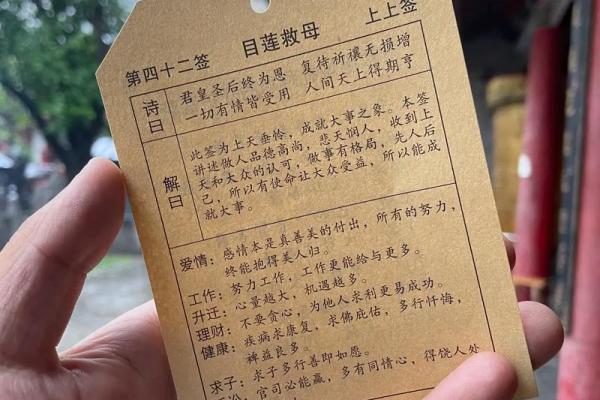 第四十二签 目莲救母 上上签
诗曰
君皇圣后终为恩 复待祈禳无损增
一切有情皆受用 人间天上得期亨
解曰
此签为上天垂怜，成就大事之象。本签
讲述做人品德高尚，悲天悯人，收到上
天和大众的认可，做事有格局，先人后
己，所以有使命让大众受益，所以能成
就大事。
爱情：感情本是真善美的付出，所有的努力，
终能抱得美人归。
工作：努力工作，工作更能给与更多。
升迁：心量越大，机遇越多。
理财：不要贪心，为他人求利更易成功。
健康：疾病求康复，求佛庇佑，多行忏悔，
裨益良多。
求子：求子多行善即如愿。
讼：官司必能赢，多有同情心，得饶人处